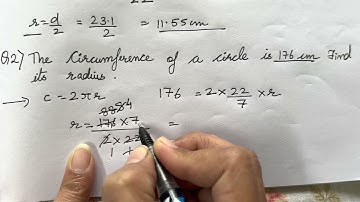 r = d/2 = 23.1/2 = 11.55cm
Q2) The Circumference of a circle is 176 cm Find
its radius.
→ C = 2πr 176 = 2 × 22/7 × r
r = 176 × 7 / 2 × 22 =